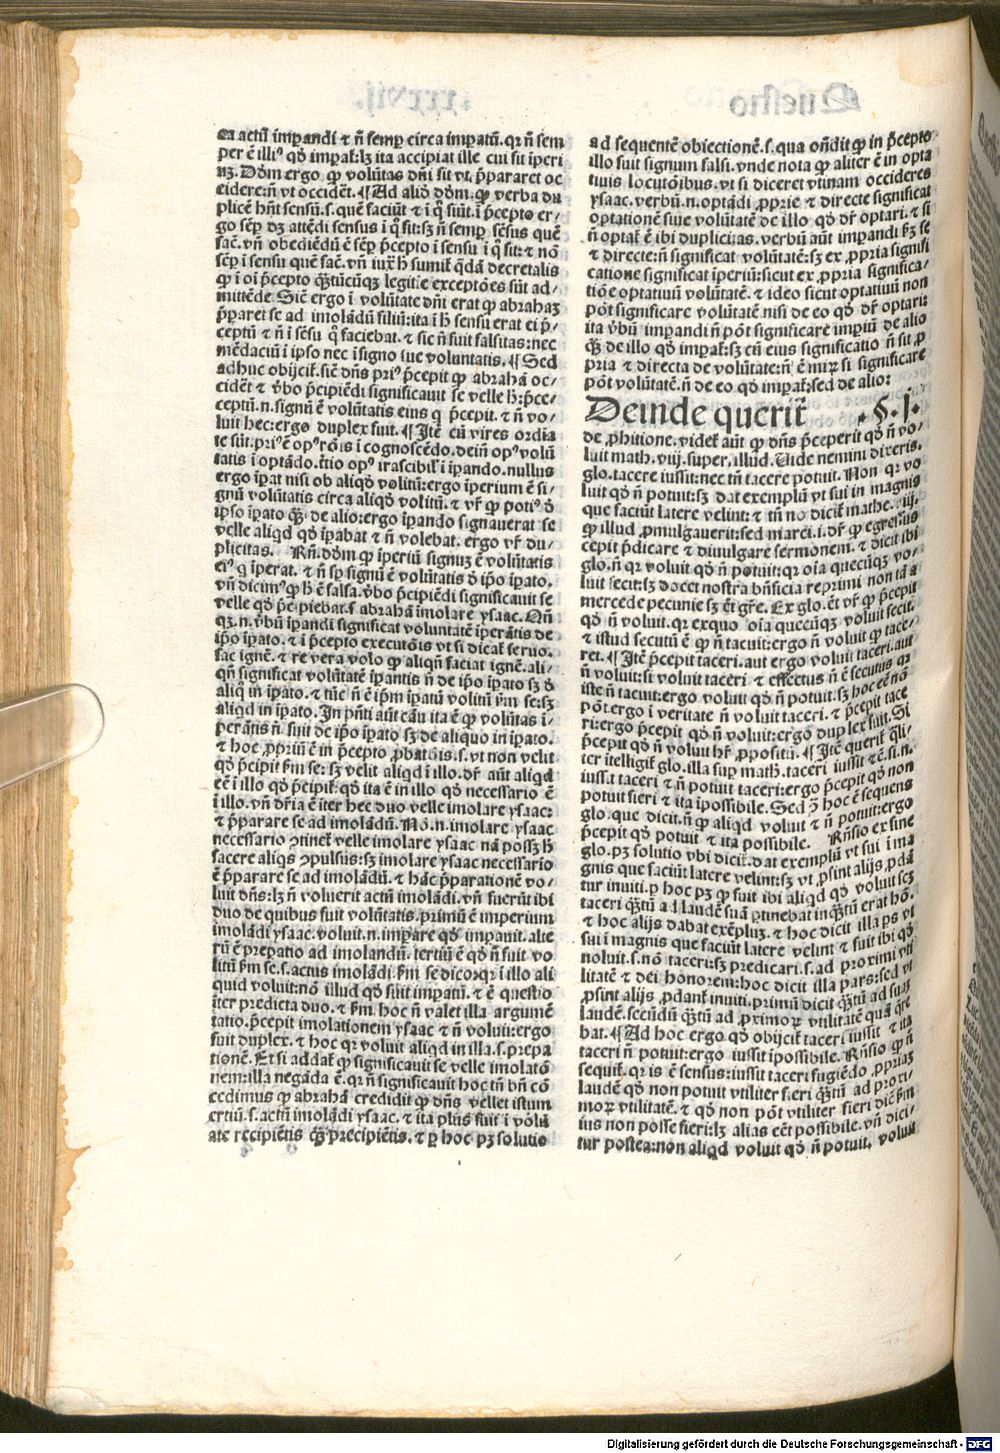 ea actū imꝑandi ⁊ ñ semꝑ circa imꝑatū. qꝛ ñ sem
per ē illi⁹ qd̓ imꝑat̃: lꝫ ita accipiat ille cui fit iperi
uꝫ. Dōm ergo ꝙ volūtas dñi fit vt p̄pararet oc
cidere: nō vt occidēt. ¶ Ad aliō dōm. ꝙ verba du
plicē hñt sensū. s. quē faciūt ⁊ ī q̊ fiūt. ī p̄cepto er⸗
go sēꝑ dꝫ attēdi sensus ī q̊ fit: sꝫ ñ semꝑ sēsus quē
fac̄. vñ obediēdū ē sēꝑ p̄cepto ī sensu ī q̊ fit: ⁊ nō
sēꝑ ī sensu quē fac̄. vñ iuxͣ h̄ sumit̃ q̄dā decretalis
ꝙ ī oī p̄cepto q̄ꝫtūcūqꝫ legit̃ e exceptōes sūt ad⸗
mittēde. Sic̄ ergo ī volūtate dñi erat ꝙ abrahaꝫ
p̄pararet se ad imolādū filiū: ita ī h̄ sensu erat ei p̄⸗
ceptū ⁊ ñ ī sēsu q̊ faciebat. ⁊ sic ñ fuit falsitas: nec
mēdaciū ī ipso nec ī signo sue voluntatis. ¶ Sed
adhuc obijcit̃. sic̄ dñs pri⁹ p̄cepit ꝙ abrahā oc⸗
cidēt ⁊ v̓bo p̄cipiēdi significauit se velle h̄: p̄ce⸗
ceptū. n. signū ē volūtatis eius q̇ p̄cepit. ⁊ ñ vo⸗
luit hec: ergo duplex fuit. ¶ Itē cū vires ordia
te sūt. pri⁹ ē op⁹ rōis ī cognoscēdo. dein̄ op⁹ volū
tatis ī optādo. t̄tio op⁹ irascibil̃ ī iꝑando. nullus
ergo iꝑat nisi ob aliqd̓ volitū: ergo iꝑerium ē si⸗
gnū volūtatis circa aliqd̓ volitū. ⁊ vr̄ ꝙ poti⁹ d̓
ip̄so iꝑato q̄ꝫ de alio: ergo iꝑando signauerat se
velle aliqd̓ qd̓ iꝑabat ⁊ ñ volebat. ergo vr̄ du⸗
plicitas. Rñ. dōm ꝙ iꝑeriū signuꝫ ē volūtatis
ei⁹ q̇ iꝑerat. ⁊ ñ sꝑ signū ē volūtatis d̓ ip̄o iꝑato.
vñ dicim⁹ ꝙ h̄ ē falsa. v̓bo p̄cipiēdi significauit se
velle qd̓ p̄cipiebat. s. abrahā imolare ysaac. Qñ
qꝫ. n. v̓bū iꝑandi significat voluntatē iꝑerātis de
ip̄o iꝑato. ⁊ ī p̄cepto executōis vt si dicat̃ seruo.
fac ignē. ⁊ re vera volo ꝙ aliq̄ñ faciat ignē. ali⸗
qñ significat volūtatē iꝑantis ñ de ip̄o iꝑato sꝫ d̓
aliq̊ in iꝑato. ⁊ tūc ñ ē ip̄m iꝑatū volitū ẜm se: sꝫ
aliqd̓ in iꝑato. In pñti aūt cāu ita ē ꝙ volūtas i⸗
perātis ñ fuit de ip̄o iꝑato sꝫ de aliquo in iꝑato.
⁊ hoc ꝓpriū ē in p̄cepto ꝓbatōis. s. vt non velit
qd̓ p̄cipit ẜm se: sꝫ velit aliqd̓ ī illo. dr̄ aūt aliqd̓
eē ī illo qd̓ p̄cipit̃. qd̓ ita ē in illo qd̓ necessario ē
ī illo. vñ dr̄ia ē īter hec duo velle imolare ysaac:
⁊ p̄parare se ad imolādū. Nō. n. imolare ysaac
necessario ↄtinet̃ velle imolare ysaac nā possꝫ h̄
facere aliqs ↄpulsus: sꝫ imolare ysaac necessario
ē p̄parare se ad imolādū. ⁊ hāc p̄parationē vo⸗
luit dñs: lꝫ ñ voluerit actū imolādi. vñ fuerūt ibi
duo de quibus fuit volūtatis. primū ē imperium
imolādi ysaac. voluit. n. imꝑare qd̓ imꝑauit. alte
rū ē preꝑatio ad imolandū. tertiū ē qd̓ ñ fuit vo
litū ẜm se. s. actus imolādi. ẜm se dico: qꝛ ī illo ali
quid voluit: nō illud qd̓ fuit imꝑatū. ⁊ ē questio
īter predicta duo. ⁊ ẜm hoc ñ valet illa argumē
tatio. p̄cepit imolationem ysaac ⁊ ñ voluit: ergo
fuit duplex. ⁊ hoc qꝛ voluit aliqd̓ in illa. s. prepa
tionē. Et si addat̃ ꝙ significauit se velle imolatō
nem: illa negāda ē. qꝛ ñ significauit hoc tñ bñ cō
cedimus ꝙ abrahā credidit ꝙ dñs vellet istum
tertiū. s. actū imolādi ysaac. ⁊ ita plus fuit ī volū
ate recipiētis q̄ꝫ precipiētis. ⁊ ꝑ hoc pꝫ solutio
ad sequentē obiectionē. s. qua oñdit̃ ꝙ in p̄cepto
illo fuit signum falsi. vnde nota ꝙ aliter ē in opta
tiuis locutōibus. vt si diceret vtinam occideres
ysaac. verbū. n. optādi ꝓprie ⁊ directe significat
optationē siue volūtatē de illo qd̓ dr̄ optari. ⁊ si
ñ optat̃ ē ibi duplicitas. verbū aūt imꝑandi ẜꝫ se
⁊ directe: ñ significat volūtatē: sꝫ ex ꝓpria signifi
catione significat iꝑeriū: sicut ex ꝓpria significa⸗
tiōe optatiuū volūtatē. ⁊ ideo sicut optatiuū non
pōt significare volūtatē nisi de eo qd̓ dr̄ optari:
ita v̓bū imꝑandi ñ pōt significare imꝑiū de alio
q̄ꝫ de illo qd̓ imꝑat̃: sꝫ cū eius significatio ñ sit ꝓ
pria ⁊ directa de volūtate: ñ ē miꝝ si significare
pōt volūtatē. ñ de eo qd̓ imꝑat̃: sed de alio:
Deinde querit̃ . §. j.
de ꝓhitione. videt̃ aūt ꝙ dñs p̄ceperit qd̓ ñ vo⸗
luit math. viij. super. illud. Uide nemini dixeris.
glo. tacere iussit: nec tñ tacere potuit. Non qꝛ vo
luit qd̓ ñ potuit: sꝫ dat exemplū vt sui in magnis
que faciūt latere velint: ⁊ tñ no dicit̃ mathe. iij.
ꝙ illud ꝓmulgauerit: sed marci. i. dr̄ ꝙ egressus
cepit p̄dicare ⁊ diuulgare sermonem. ⁊ dicit ibi
glo. ñ qꝛ voluit qd̓ ñ potuit: qꝛ oīa quecūqꝫ vo⸗
luit fecit: sꝫ docet nostra bñficia reprimi non tā ā
mercede pecunie sꝫ ēt gr̄e. Ex glo. ēt vr̄ ꝙ p̄cepit
qd̓ ñ voluit. qꝛ exquo oīa quecūqꝫ voluit fecit.
⁊ istud secutū ē ꝙ ñ tacuit: ergo ñ voluit ꝙ tace⸗
ret. ¶ Itē p̄cepit taceri. aut ergo voluit taceri. aut
ñ voluit: si voluit taceri ⁊ effectus ñ ē secutus qꝛ
iste ñ tacuit: ergo voluit qd̓ ñ potuit. sꝫ hoc eē nō
pōt: ergo ī veritate ñ voluit taceri. ⁊ p̄cepit tace
ri: ergo p̄cepit qd̓ ñ voluit: ergo duplex fuit. Si
p̄cepit qd̓ ñ voluit hr̄ ꝓpositū. ¶ Itē querit̃ q̄li⸗
ter itelligit̃ glo. illa sup̄ math. taceri iussit ⁊c̄. si. n.
iussit taceri ⁊ ñ potuit taceri: ergo p̄cepit qd̓ non
potuit fieri ⁊ ita ipossibile. Sed ↄ̄ hoc ē sequens
glo. que dicit. ñ ꝙ aliqd̓ voluit ⁊ ñ potuit: ergo
p̄cepit qd̓ potuit ⁊ ita possibile. Rñsio ex fine
glo. pꝫ solutio vbi dicit̃. dat exemplū vt sui ī ma
gnis que faciūt latere velint: sꝫ vt ꝓsint alijs. ꝓdā
tur inuiti. ꝑ hoc pꝫ ꝙ fuit ibi aliqd̓ qd̓ voluit sꝫ
taceri q̄ꝫtū ad laudē suā ꝑtinebat inq̄ꝫtū erat hō.
⁊ hoc alijs dabat exēpluꝫ. ⁊ hoc dicit illa ps̄ vt
sui ī magnis que faciūt latere velint ⁊ fuit ibi qd̓
noluit. s. nō taceri: sꝫ predicari. s. ad proximi vti
litatē ⁊ dei honorem: hoc dicit illa pars: sed vt
ꝓsint alijs ꝓdant̃ inuiti. primū dicit q̄ꝫtū ad suaꝫ
laudē. secūdū q̄ꝫtū ad ꝓximoꝝ vtilitatē quā q̄re
bat. ¶ Ad hoc ergo qd̓ obijcit̃ taceri iussit ⁊ ita
taceri ñ potuit: ergo iussit ipossibile. Rñsio ꝙ ñ
sequit̃. qꝛ is ē sensus: iussit taceri fugiēdo ꝓpriaꝫ
laudē qd̓ non potuit vtiliter fieri q̄ꝫtū ad proxi⸗
moꝝ vtilitatē. ⁊ qd̓ non pōt vtiliter fieri dic̄ ẜm
ius non posse fieri: lꝫ alias eēt possibile. vñ dici⸗
tur postea: non aliqd̓ voluit qd̓ ñ potuit. voluit